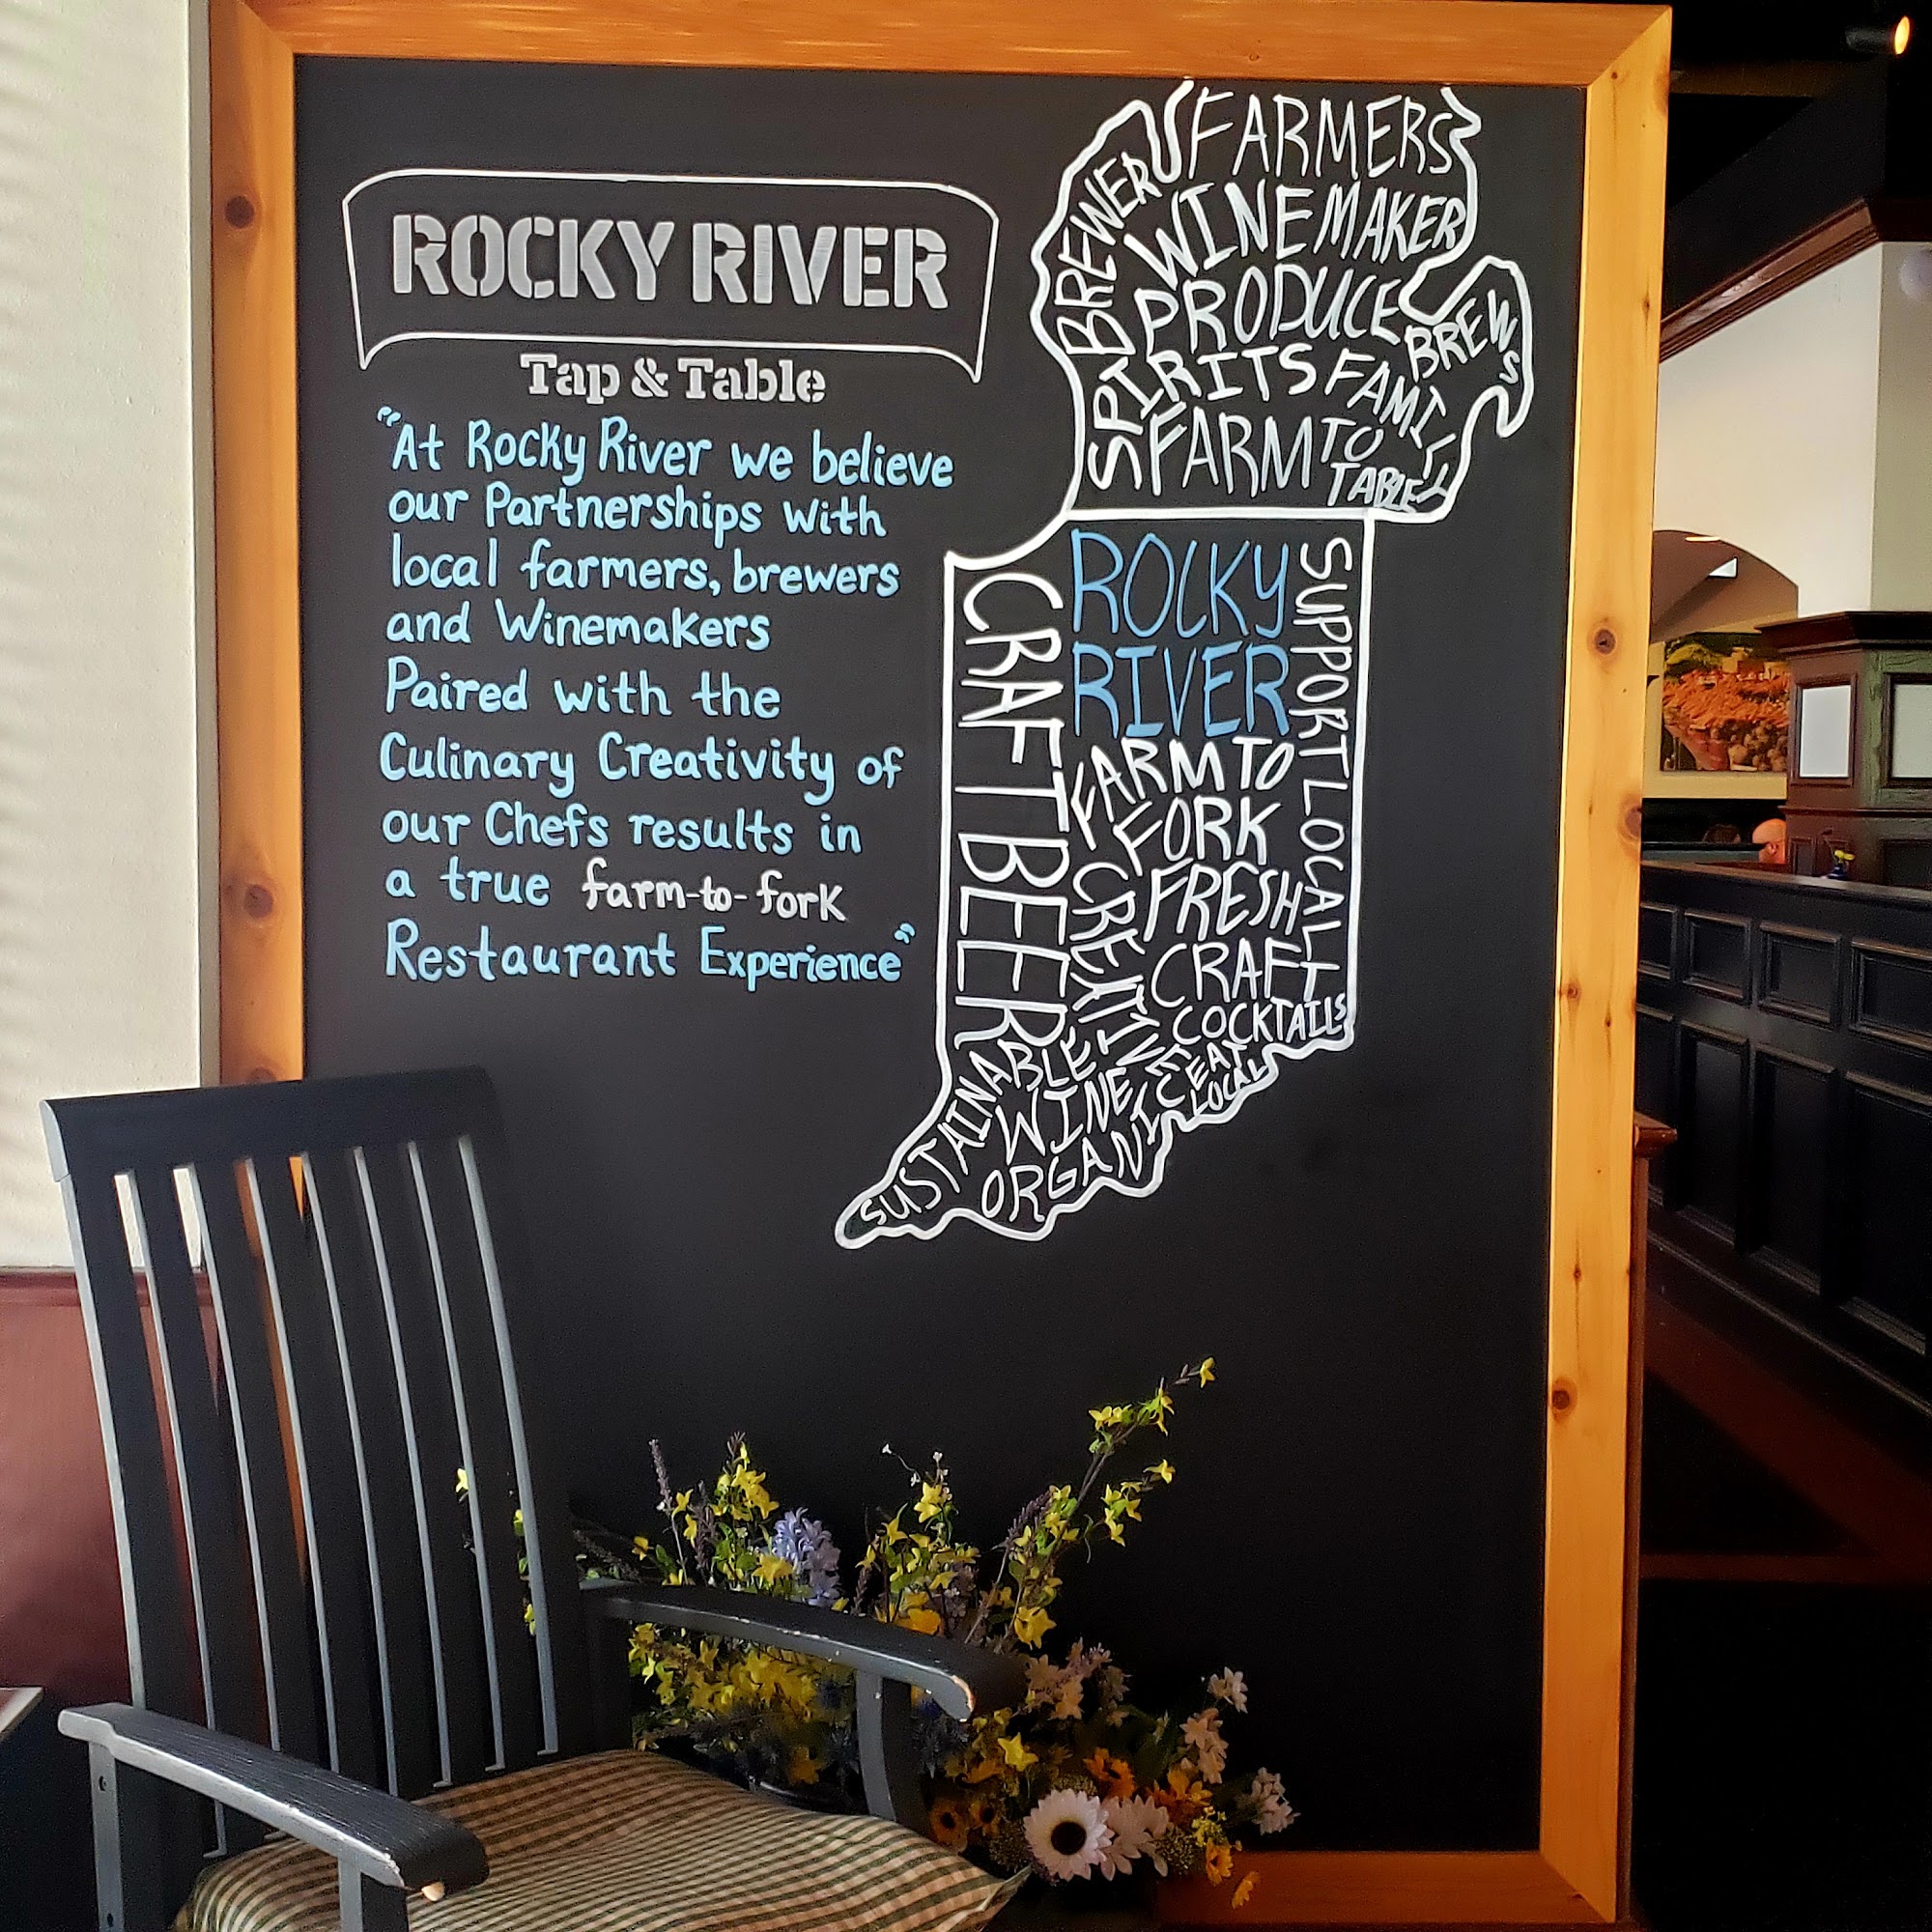 ROCKY RIVER
Tap & Table
"At Rocky River we believe
our Partnerships with
local farmers, brewers
and Winemakers
Paired with the
Culinary Creativity of
our Chefs results in
a true farm-to-fork
Restaurant Experience"
FARMERS
BREWER
WINEMAKER
PRODUCE
BREWS
SPIRITS
FAMILY
FARM TO
TABLE
ROCKY
RIVER
SUPPORT LOCAL
CRAFT BEER
FARM TO
FORK
FRESH
CREATIVE
CRAFT
COCKTAILS
SUSTAINABLE
EAT
LOCAL
WINE
ORGANIC